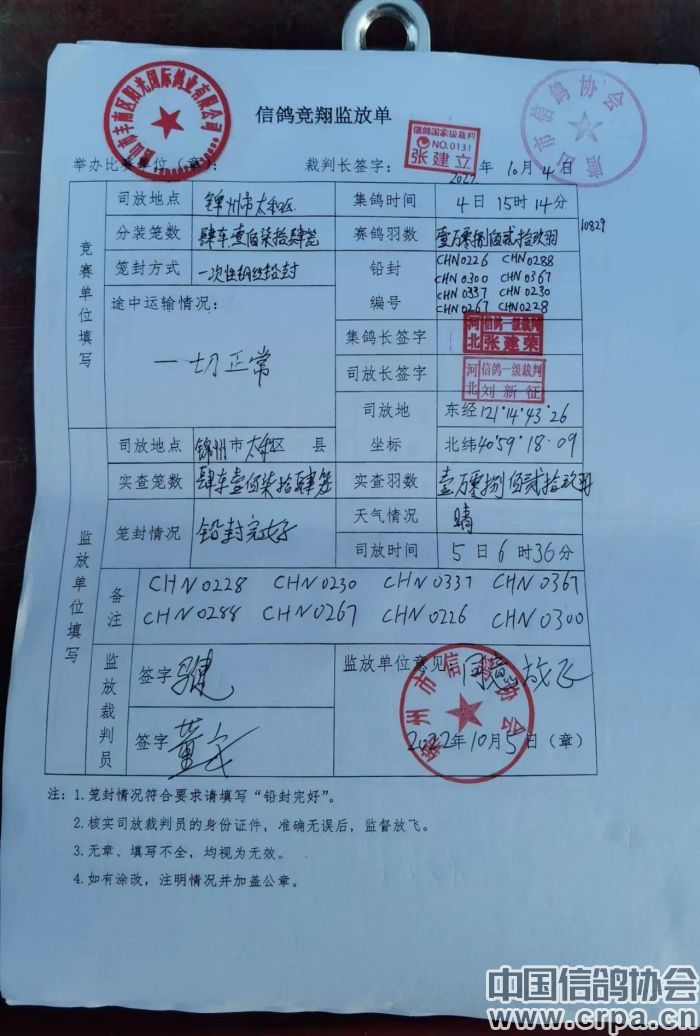 信鸽竞翔监放单
唐山市丰南区阳光国际鸽业有限公司
唐山市信鸽协会
举办比赛单位（章）： 裁判长签字： 2022年10月4日
信鸽国家级裁判
NO.0131
张建立
竞赛单位填写
司放地点 锦州市太和区 集鸽时间 4日15时14分
分装笼数 肆车壹佰柒拾肆笼 赛鸽羽数 壹万零捌佰贰拾玖羽 10829
笼封方式 一次性钢丝铅封 铅封编号
CHN0226 CHN0288
CHN0300 CHN0367
CHN0337 CHN0230
CHN0267 CHN0228
途中运输情况：
一切正常
集鸽长签字 河北 信鸽一级裁判 张建荣
司放长签字 河北 信鸽一级裁判 刘新征
司放地坐标 东经121°14′43″26
北纬40°59′18″09
监放单位填写
司放地点 锦州市太和区 县
实查笼数 肆车壹佰柒拾肆笼 实查羽数 壹万零捌佰贰拾玖羽
笼封情况 铅封完好 天气情况 晴
司放时间 5日6时36分
备注 CHN0228 CHN0230 CHN0337 CHN0367
CHN0288 CHN0267 CHN0226 CHN0300
监放裁判员 签字 监放单位意见：同意放飞
签字
锦州市信鸽协会
2022年10月5日（章）
注：1.笼封情况符合要求请填写“铅封完好”。
2.核实司放裁判员的身份证件，准确无误后，监督放飞。
3.无章、填写不全，均视为无效。
4.如有涂改，注明情况并加盖公章。
中国信鸽协会
www.crpa.cn